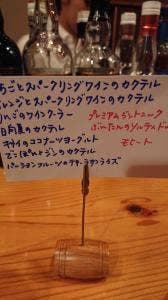 いちごとスパークリングワインのカクテル
オレンジとスパークリングワインのカクテル
りんごのワインクーラー
日向夏のカクテル
キウイのココナッツヨーグルト
でこぽんとジンのカクテル
パッションフルーツのテキーラサンライズ
プレミアムジントニック
モヒート